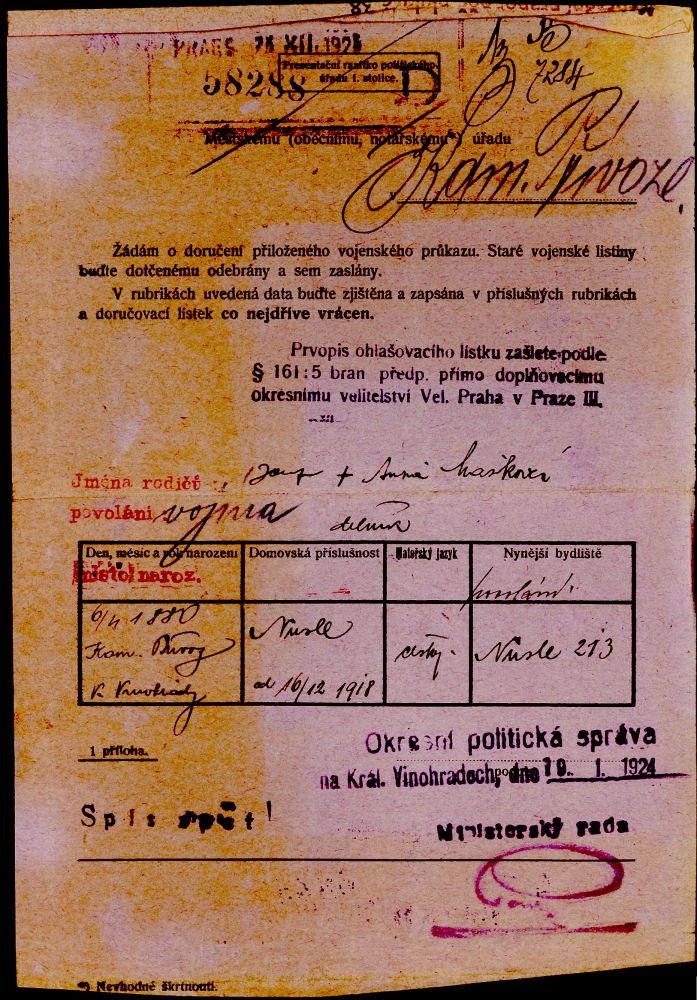 PRAHA 28 XII. 1923
58288
Presentační razítko politického
úřadu I. stolice.
D
7284
Městskému (obecnímu, notářskému*) úřadu
Kam. Přívoze
Žádám o doručení přiloženého vojenského průkazu. Staré vojenské listiny
buďte dotčenému odebrány a sem zaslány.
V rubrikách uvedená data buďte zjištěna a zapsána v příslušných rubrikách
a doručovací lístek co nejdříve vrácen.
Prvopis ohlašovacího lístku zašlete podle
§ 161:5 bran předp. přímo doplňovacímu
okresnímu velitelství Vel. Praha v Praze III.
Jména rodičů: Josef + Anna Maškovi
povolání vojína dělník
Den, měsíc a rok narození
místo naroz.
Domovská příslušnost
Mateřský jazyk
Nynější bydliště
povolání.
6/4 1880
Kam. Přívoz
K. Vinohrady
Nusle
od 16/12 1918
český.
Nusle 213
1 příloha.
Okresní politická správa
na Král. Vinohradech, dne 10. 1. 1924
Spis zpět!
Ministerský rada
*) Nevhodné škrtnouti.